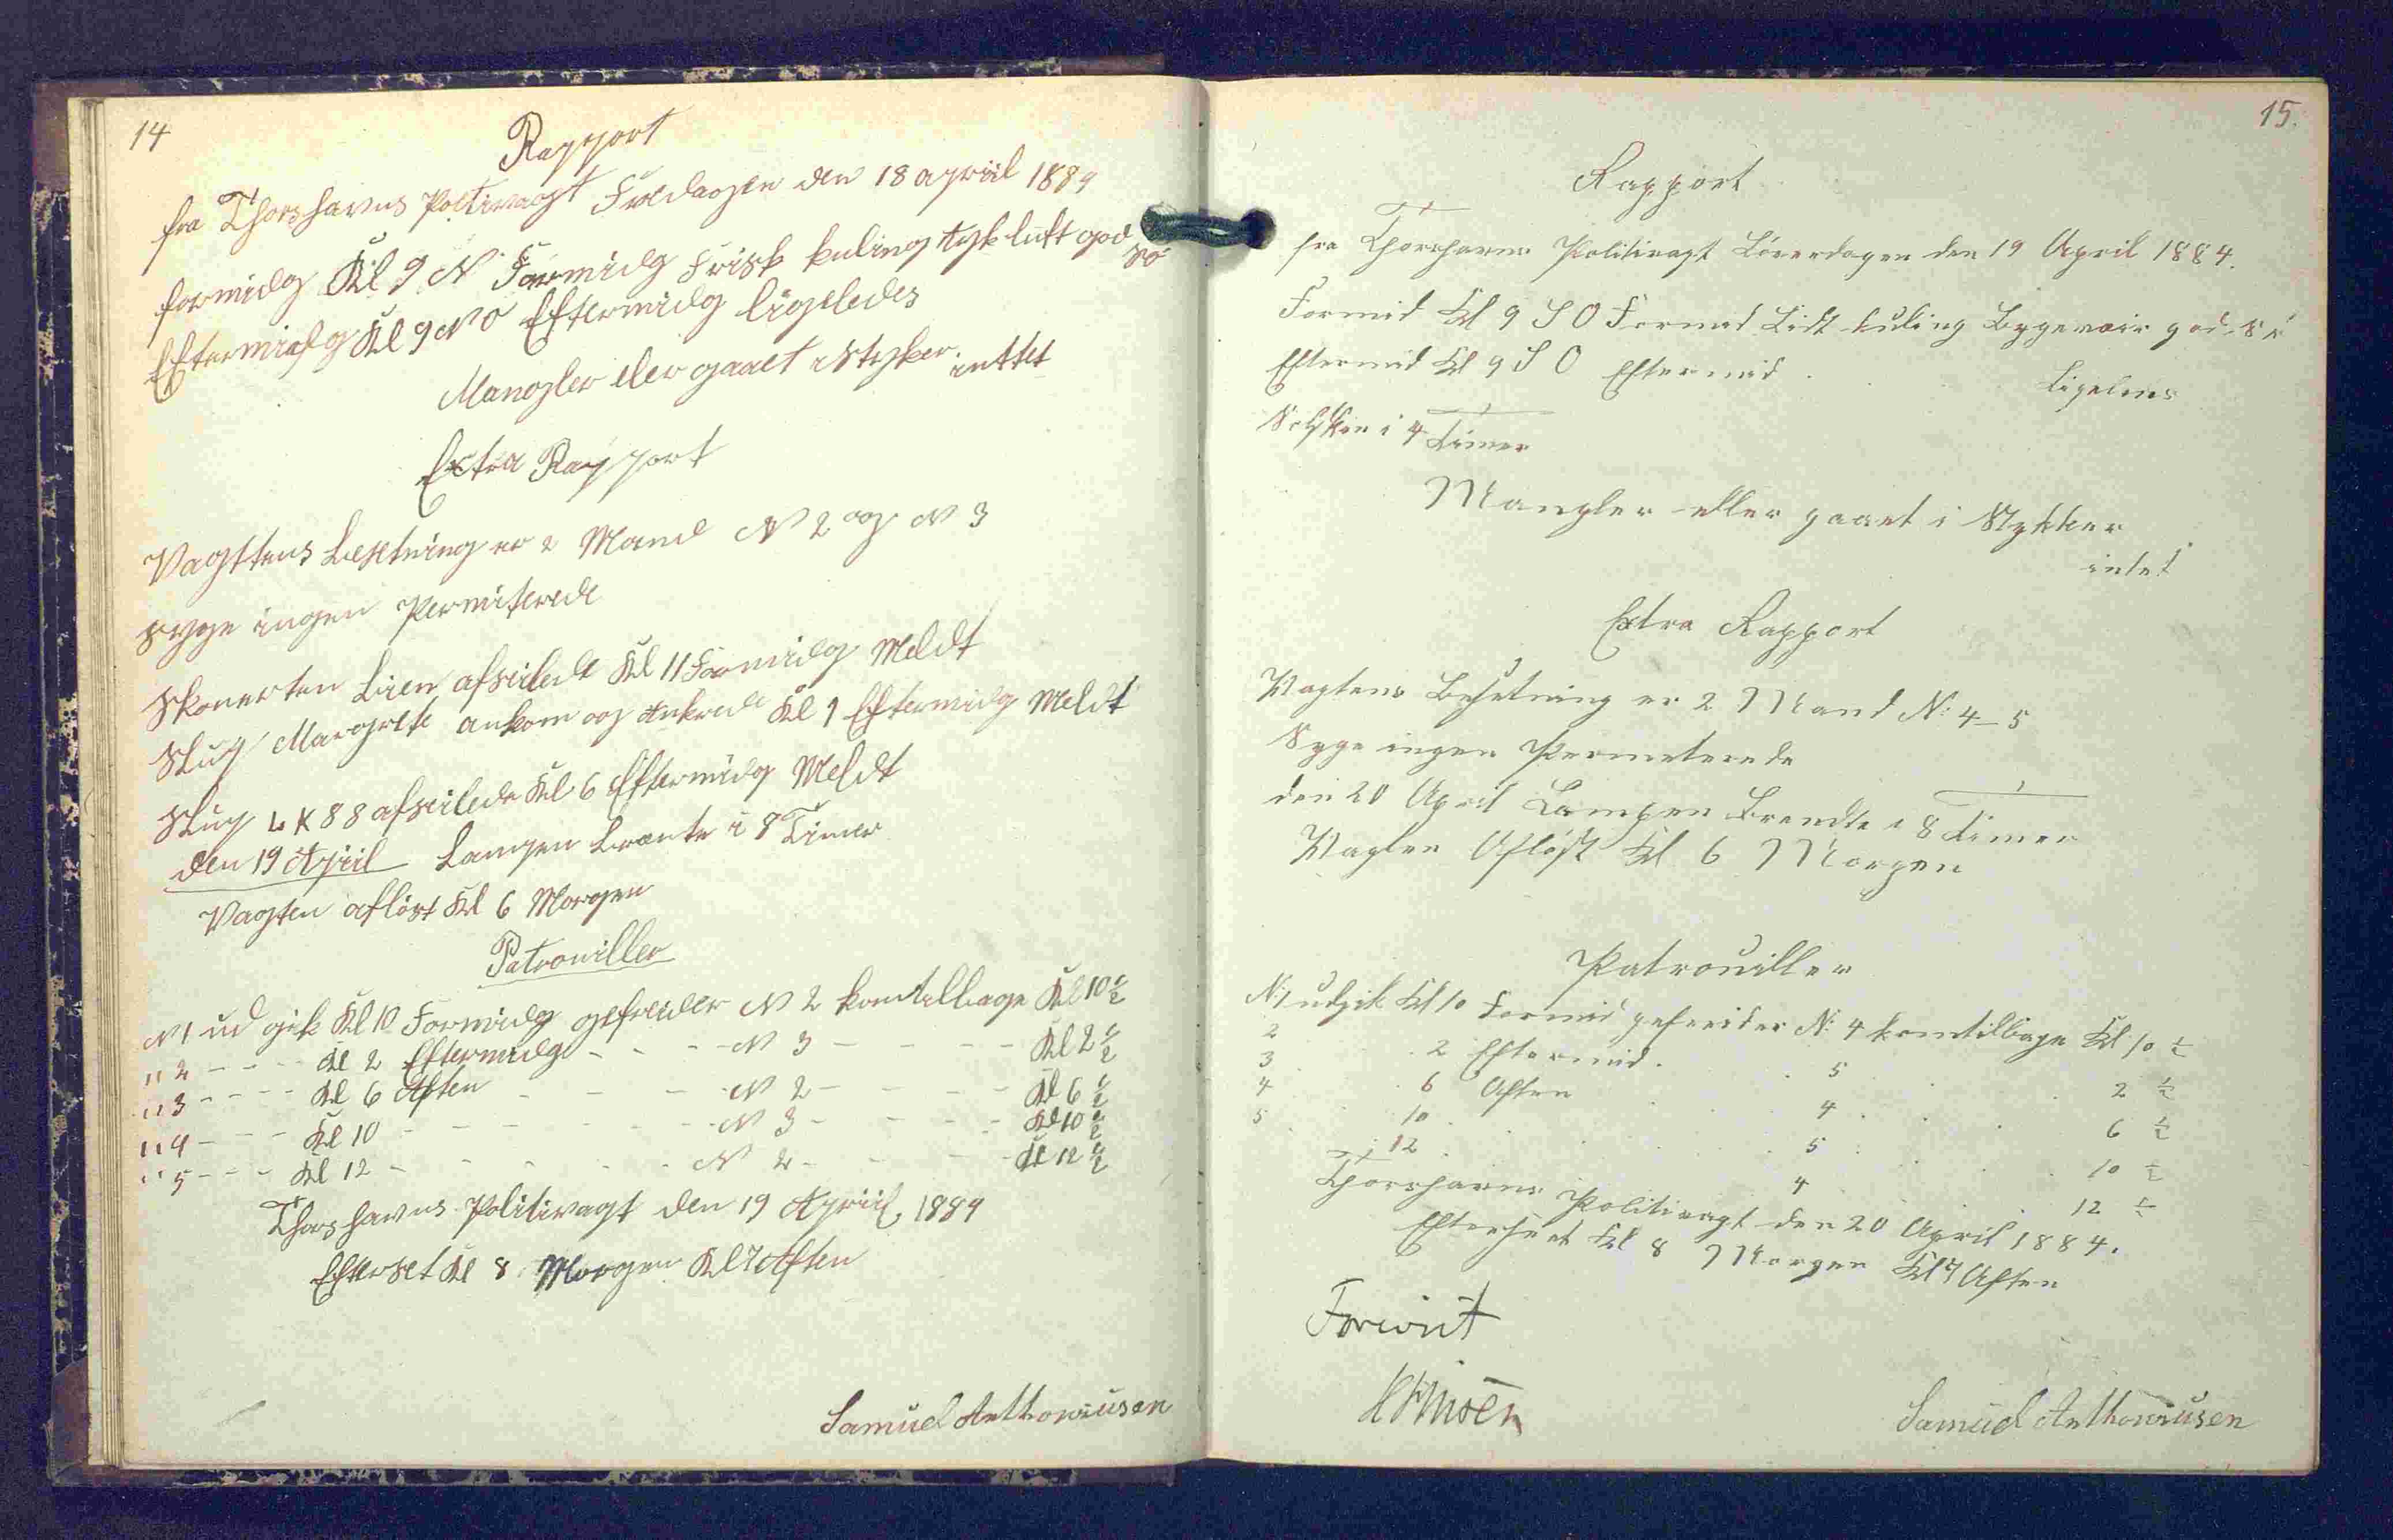 14
Rapport
fra Thorshavns Politivagt Fredagen den 18 april 1884
formidg Kl 9 N Formidg Frisk kuling tyk luft god Sö
Eftermidg Kl 9 N O Eftermidg ligeledes
Mangler eler gaaet i Styker inttet
Extra Rapport
Vagttens Besetning er 2 Mand N 2 og N 3
syge ingen Permiterede
Skonerten Lien afseilede Kl 11 Formidg Meldt
Slup Margrete ankom og Ankrede Kl 1 Eftermidg Meldt
Slup L K 88 afseilede Kl 6 Eftermidg Meldt
den 19 April Lampen brente i 8 Timer
Vagten aflöst Kl 6 Morgen
Patrouiller
N 1 ud gik Kl 10 Formidg gefreider N 2 kom tillbage Kl 10 1/2
" 2 - - - Kl 2 Eftermidg - - - N 3 - - - - Kl 2 1/2
" 3 - - - Kl 6 Aften - - - N 2 - - - - Kl 6 1/2
" 4 - - - Kl 10 - - - - - N 3 - - - - Kl 10 1/2
" 5 - - - Kl 12 - - - - - N 2 - - - - Kl 12 1/2
Thorshavns Politivagt den 19 Apriil 1884
Efterset Kl 8 Morgen Kl 7 Aften
Samuel Anthoniusen
15.
Rapport
fra Thorshavns Politivagt Löverdagen den 19 April 1884.
Formid Kl 9 S O Formid Lidt kuling Bygevair god Sö
Eftermid Kl 9 S O Eftermid . . Ligeledes
Solskin i 4 Timer
Mangler eller gaaet i Stykker
intet
Extra Rapport
Vagtens Besetning er 2 Mand N: 4 - 5
Syge ingen Permeterede
den 20 April Lampen Brendte i 8 Timer
Vagten Aflöst Kl 6 Morgen
Patrouiller
N: 1 udgik Kl 10 Formid gefreider N: 4 kom tilbage Kl 10 1/2
2 . . 2 Eftermid . . 5 . . 2 1/2
3 . . 6 Aften . . 4 . . 6 1/2
4 . . 10 . . 5 . . 10 1/2
5 . . 12 . . 4 . . 12 1/2
Thorshavns Politivagt den 20 April 1884.
Efterseet Kl 8 Morgen Kl 7 Aften
Forevist
Samuel Anthoniusen